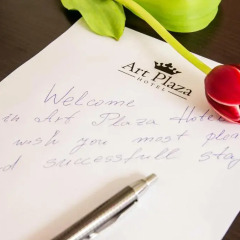 Art Plaza
HOTEL
Welcome
in Art Plaza Hotel
wish you most plea
d successfull stay